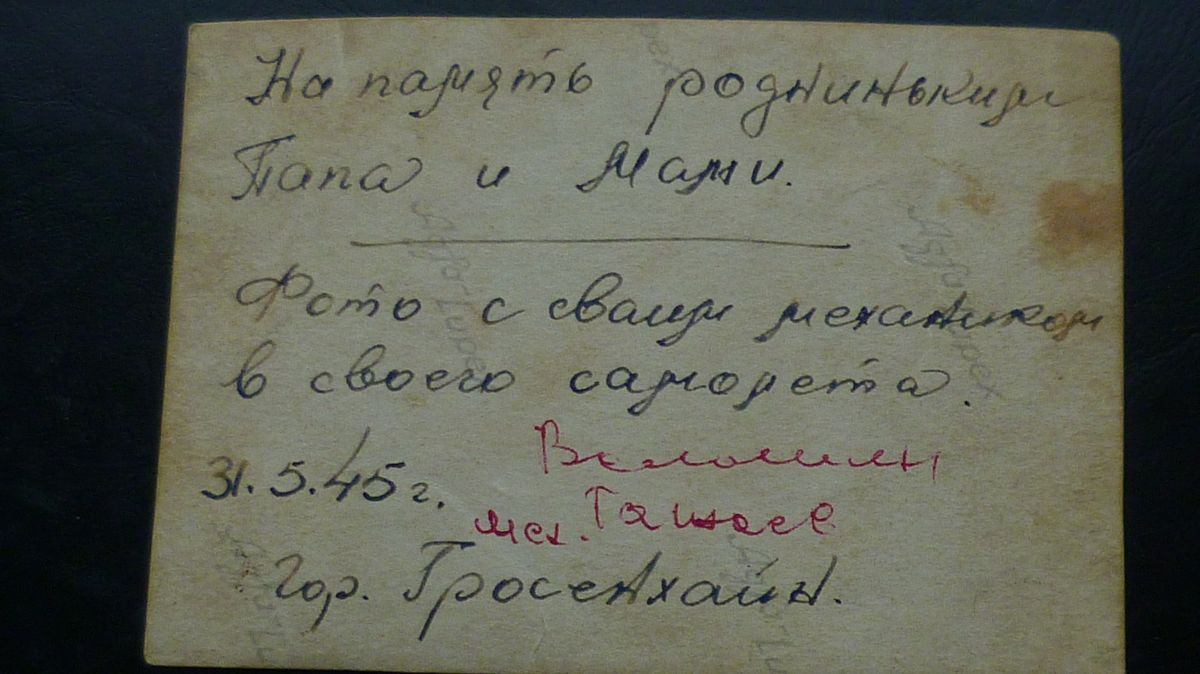 На память родниньким
Папа и Мами.
Фото с сваим механиком
в своего самолета.
31.5.45 г.
мех.
Гор. Гросенхайн.